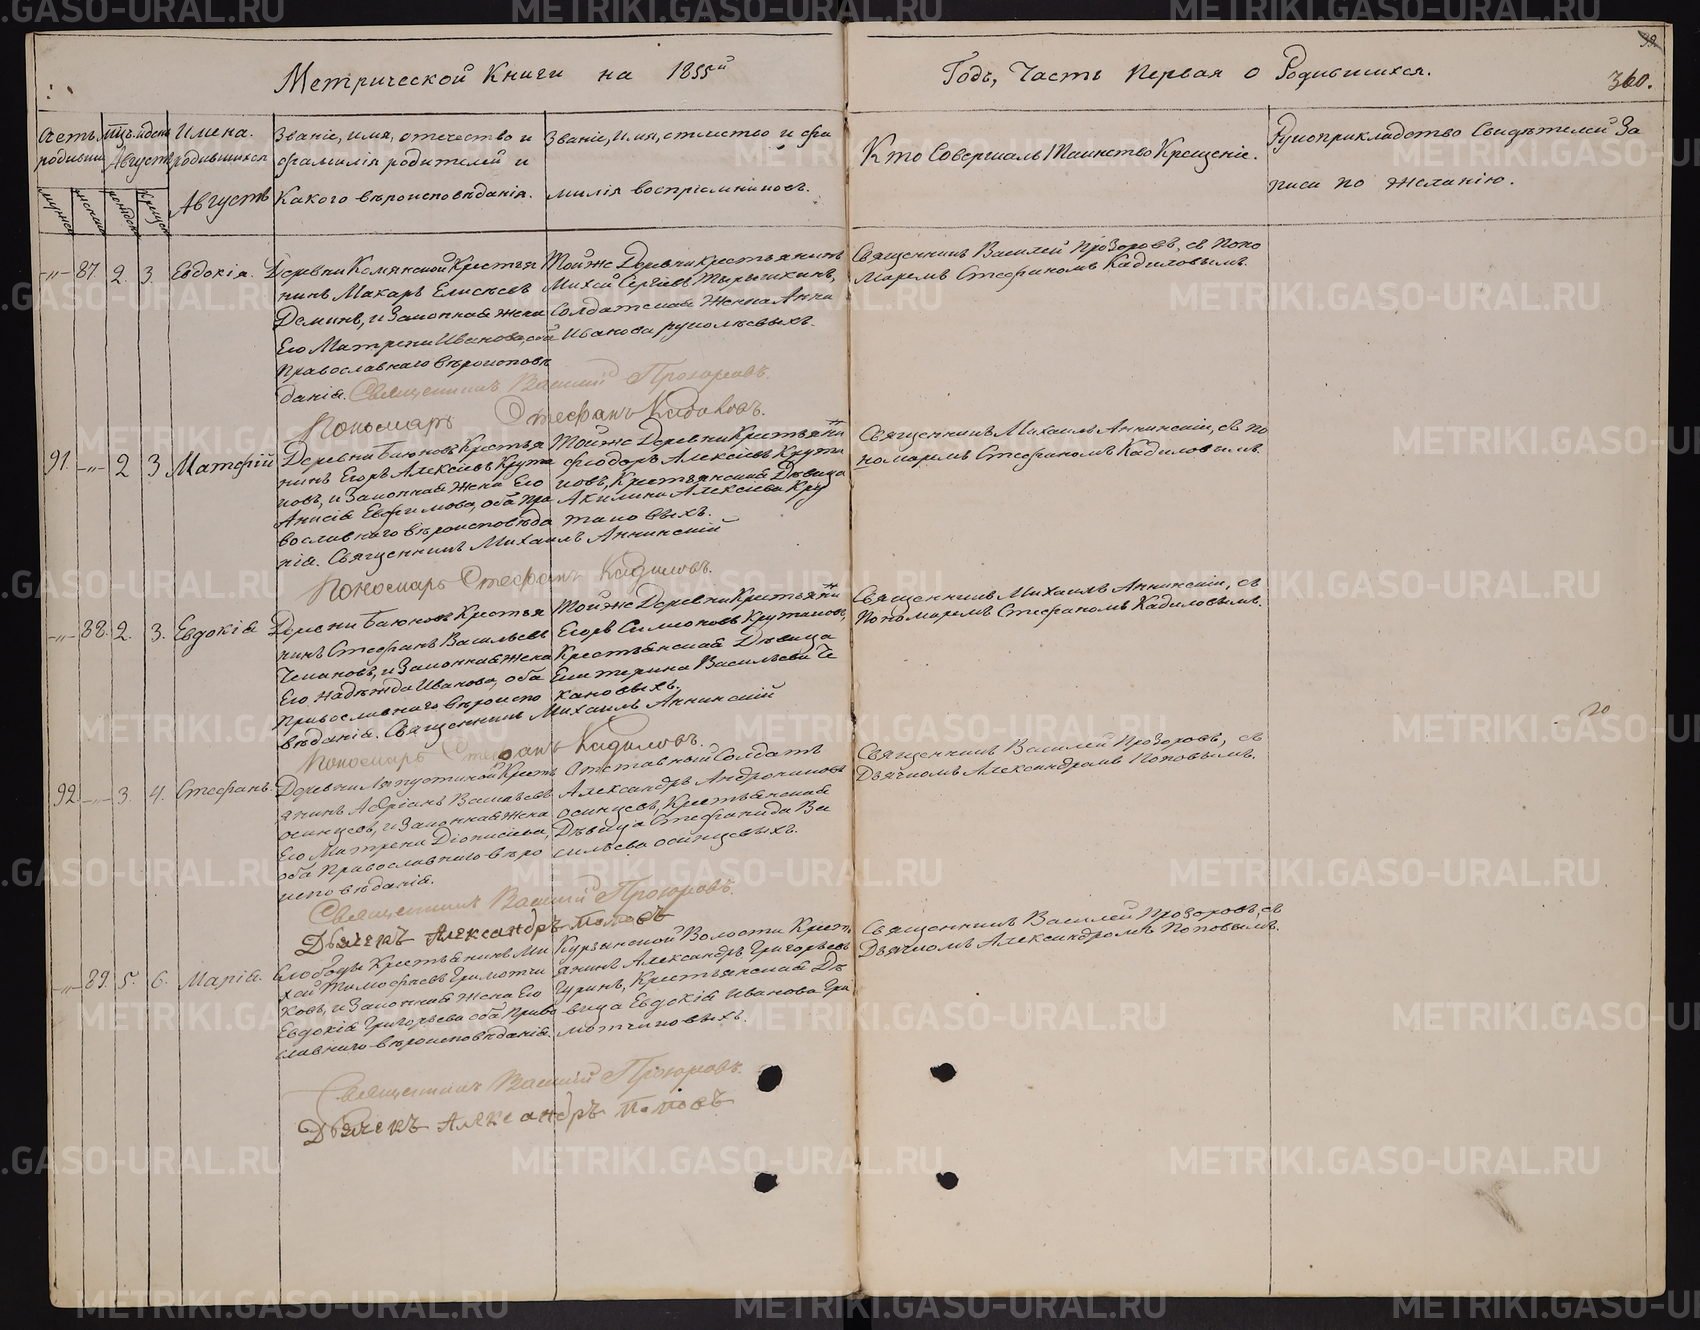 Метрической Книги на 1855й
Годъ, Часть Первая о Родившихся.
360.
Счетъ родивш.
Мцъ. и день
Августъ
Имена.
родившихся
Августъ
Званіе, имя, отечество и
фамилія родителей и
Какого вѣроисповѣданія.
Званіе, имя, отечество и фа
милія воспріемниковъ.
Кто Совершалъ Таинство Крещеніе.
Рукоприкладство Свидѣтелей За
писи по желанію.
-„- 87. 2. 3. Евдокія.
Деревни Крестья
нинъ Макаръ Елисѣевъ
Деминъ, и Законная Жена
Его Матрена Иванова, оба
Православнаго вѣроисповѣ
данія. Священникъ Василій Прозоровъ.
Пономарь Стефанъ Кадиловъ.
Тойже Деревни Крестьянинъ
Михей Сергѣевъ
Солдатская Жена Анна
Иванова
Священникъ Василей Прозоровъ, съ Поно
маремъ Стефаномъ Кадиловымъ.
91. -„- 2 3 Матфій
Деревни Баюновъ Крестья
нинъ Егоръ Алексѣевъ Крута
новъ, и Законная Жена Его
Анисія Евфимова, оба Пра
вославнаго вѣроисповѣда
нія. Священникъ Михаилъ Аннинскій
Пономарь Стефанъ Кадиловъ.
Тойже Деревни Крестьянинъ
Феодоръ Алексѣевъ Крута
новъ, Крестьянская Дѣвица
Акилина Алексѣева Кру
тановыхъ.
Священникъ Михаилъ Аннинскій, съ по
номаремъ Стефаномъ Кадиловымъ.
-„- 88. 2. 3. Евдокія
Деревни Баюновъ Крестья
нинъ Стефанъ Васильевъ
Чекановъ, и Законная Жена
Его Надѣжда Иванова, оба
Православнаго вѣроиспо
вѣданія. Священникъ Михаилъ Аннинскій
Пономарь Стефанъ Кадиловъ.
Тойже Деревни Крестьянинъ
Егоръ Симеоновъ Крутановъ,
Крестьянская Дѣвица
Екатерина Васильева Че
кановыхъ.
Священникъ Михаилъ Аннинскій, съ
Пономаремъ Стефаномъ Кадиловымъ.
20
92. -„- 3. 4. Стефанъ.
Деревни Лягустиной Кресть
янинъ Адріанъ Васильевъ
Осинцевъ, и Законная Жена
Его Матрена Діонисіева,
оба Православнаго вѣро
исповѣданія.
Священникъ Василій Прозоровъ.
Дьячекъ Александръ Поповъ
Отставный Солдатъ
Александръ Андрониковъ
Осинцевъ, Крестьянская
Дѣвица Стефанида Ва
сильева Осинцевыхъ.
Священникъ Василей Прозоровъ, съ
Дьячкомъ Александромъ Поповымъ.
-„- 89. 5. 6. Марія.
Слободы Крестьянинъ Ми
хей Тимофѣевъ Грамотчи
ковъ, и Законная Жена Его
Евдокія Григорьева оба Право
славнаго вѣроисповѣданія.
Священникъ Василій Прозоровъ.
Дьячекъ Александръ Поповъ
Курьинской Волости Крест
янинъ Александръ Григорьевъ
Гуринъ, Крестьянская Дѣ
вица Евдокія Иванова Гра
мотчиковыхъ.
Священникъ Василей Прозоровъ, съ
Дьячкомъ Александромъ Поповымъ.
METRIKI.GASO-URAL.RU